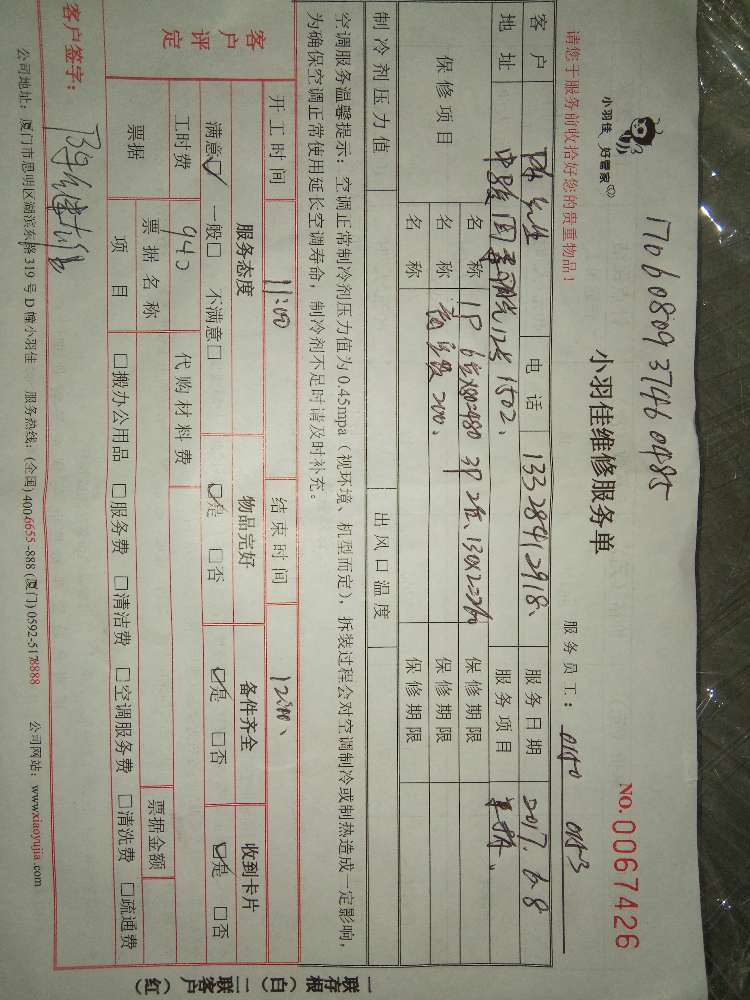 1706080937460485
小羽佳 好管家
小羽佳维修服务单
NO.0067426
请您于服务前收拾好您的贵重物品！
服务员工：0150 0153
客户 陈先生 电话 13328412918、 服务日期 2017.6.8
地址 1502、 服务项目 单拆、
保修项目 名称 1P 6台×80=480 3P 2台、130×2=260 保修期限
名称 200、 保修期限
名称 保修期限
制冷剂压力值 出风口温度
空调服务温馨提示：空调正常制冷剂压力值为0.45mpa（视环境、机型而定），拆装过程会对空调制冷或制热造成一定影响，
为确保空调正常使用延长空调寿命，制冷剂不足时请及时补充。
开工时间 11:00 结束时间 12:00、
客户评定 服务态度 物品完好 备件齐全 收到卡片
满意☑ 一般□ 不满意□ ☑是 □否 ☑是 □否 ☑是 □否
工时费 940 代购材料费
票据 票据名称 票据金额
项目 □搬办公用品 □服务费 □清洁费 □空调服务费 □清洗费 □疏通费
客户签字：
公司地址：厦门市思明区湖滨东路319号D幢小羽佳 服务热线：(全国)400-6655-888 (厦门)0592-5178888 公司网站：www.xiaoyujia.com
一联存根（白）二联客户（红）